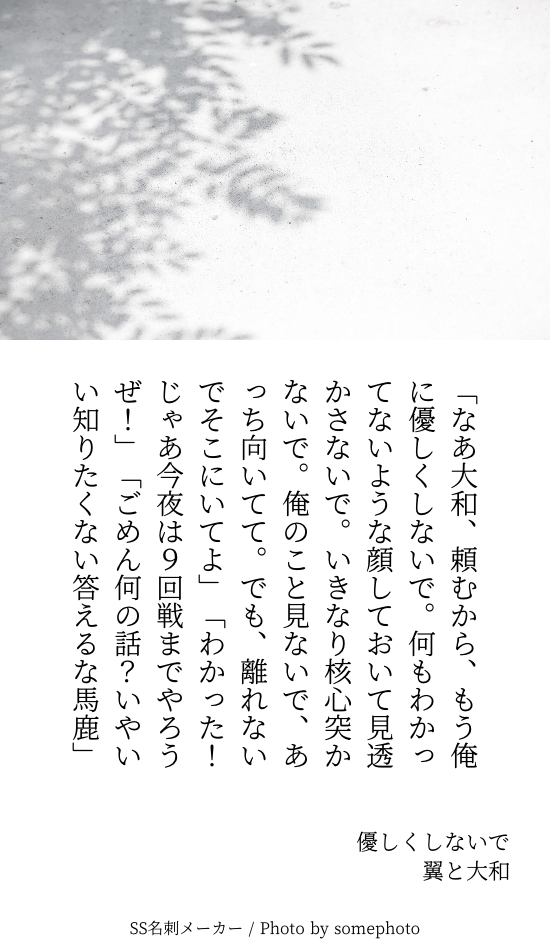 「なあ大和、頼むから、もう俺
に優しくしないで。何もわかっ
てないような顔しておいて見透
かさないで。いきなり核心突か
ないで。俺のこと見ないで、あ
っち向いてて。でも、離れない
でそこにいてよ」「わかった！
じゃあ今夜は９回戦までやろう
ぜ！」「ごめん何の話？いやい
い知りたくない答えるな馬鹿」
優しくしないで
翼と大和
SS名刺メーカー / Photo by somephoto